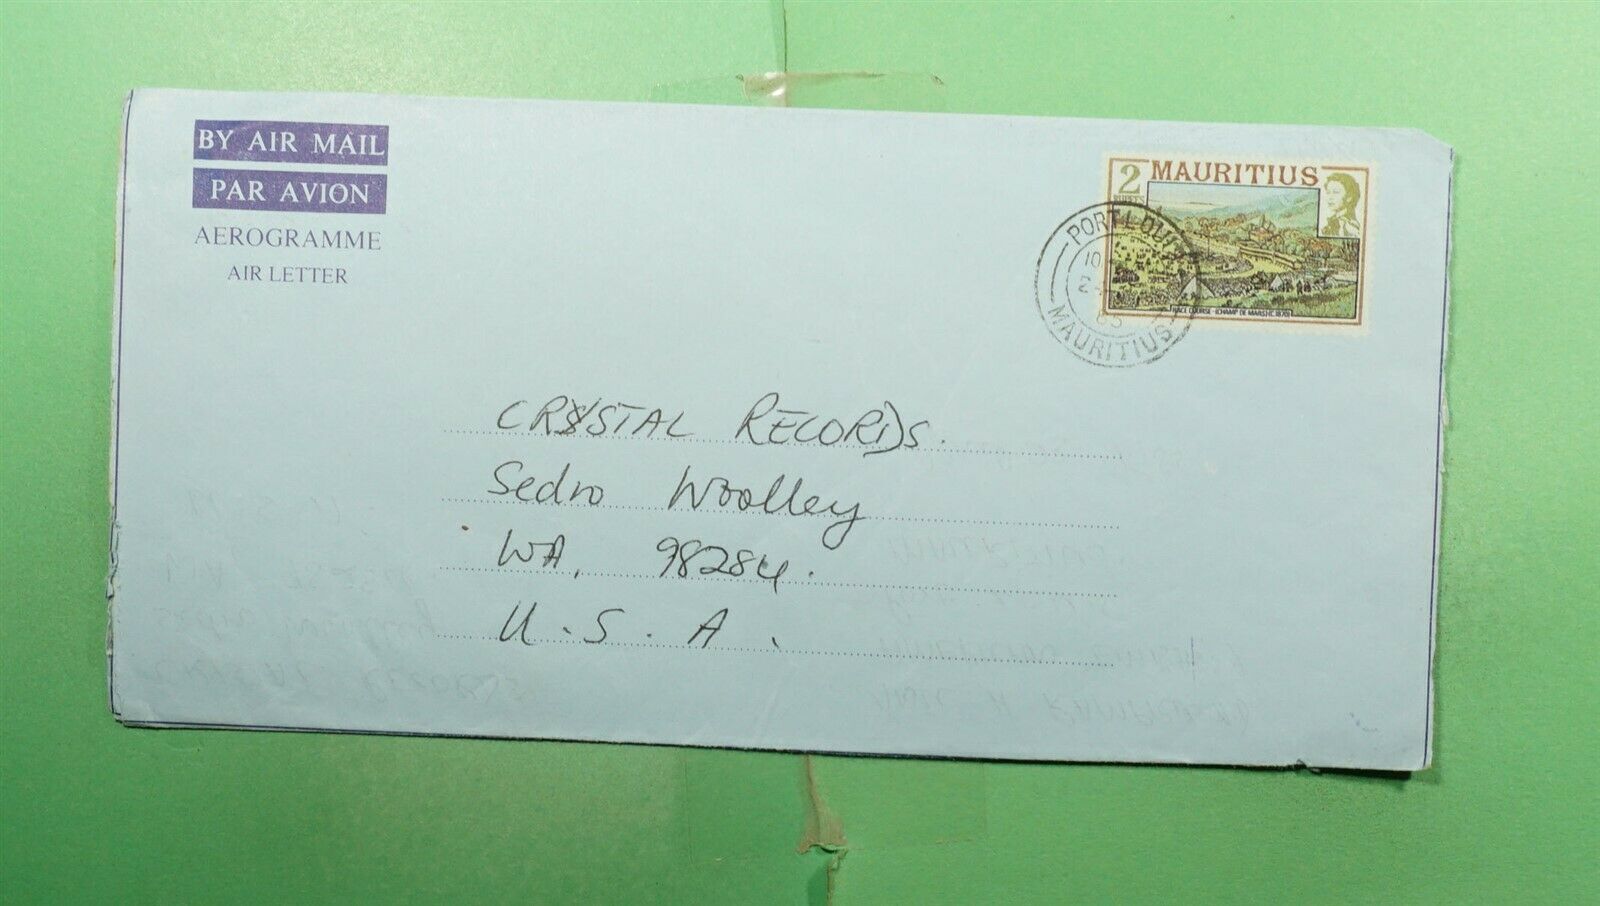 BY AIR MAIL
PAR AVION
AEROGRAMME
AIR LETTER
2 MAURITIUS
RUPEES
RACE COURSE - (CHAMP DE MARS) (C.1870)
PORT LOUIS
10
MAURITIUS
CRYSTAL RECORDS.
Sedro Woolley
WA. 98284.
U.S.A.